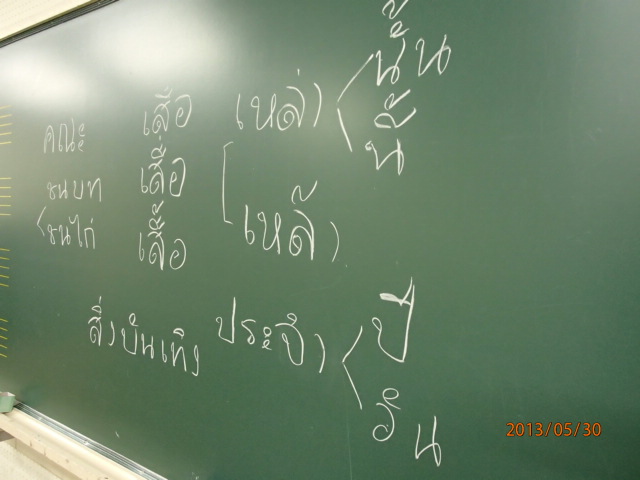 คณะ เสื้อ เหล่า นั้น
นี้
ชนบท เสื่อ
ชนไก่ เสื้อ เหล้า
สิ่งบันเทิง ประจำ ปี
วัน
2013/05/30